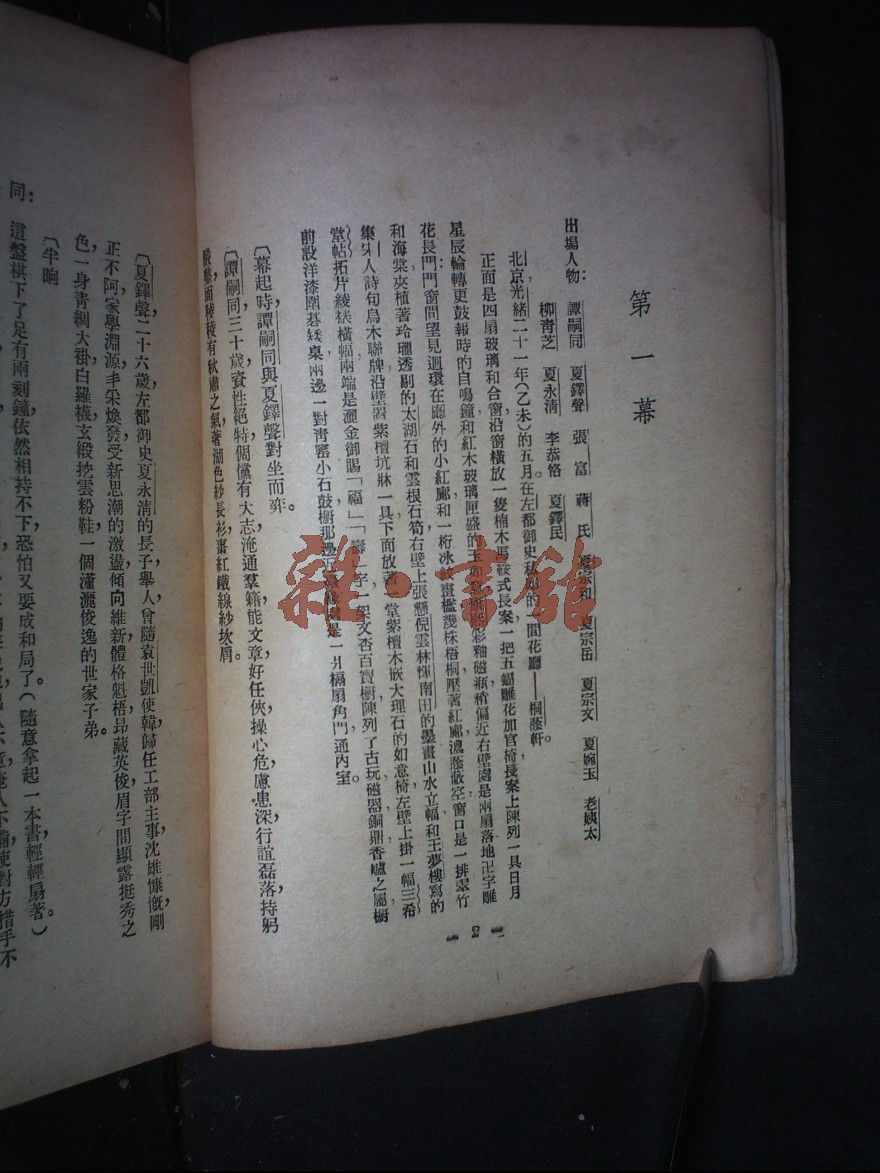 第一幕
出場人物：譚嗣同　夏鐸聲　張　富　蔣　氏　夏宗和　夏宗岳　夏宗文　夏婉玉　老姨太
柳靑芝　夏永淸　李恭恪　夏鐸民
北京，光緒二十一年（乙未）的五月，在左都御史　間花廳——桐蔭軒。
正面是四扇玻璃和合窗，沿窗橫放一隻楠木馬鞍式長案，一把五蝠雕花加官椅，長案上陳列一具日月
星辰輪轉更鼓報時的自鳴鐘和紅木玻璃匣盛的玉　彩釉磁瓶，稍偏近右壁處是兩扇落地卍字雕
花長門，門窗間望見迴環在廳外的小紅廊和一桁冰　畫檻，幾株梧桐，壓著紅廊，濃蔭蔽空，窗口是一排翠竹
和海棠，夾植著玲瓏透剔的太湖石和雲根石筍，右壁上張懸倪雲林惲南田的墨畫山水立幅，和王夢樓寫的
集　人詩句烏木聯牌，沿壁置紫檀坑牀一具，下面放著　堂紫檀木嵌大理石的如意椅，左壁上掛一幅三希
堂帖拓片綾裱橫幅，兩端是灑金御賜「福」「壽」字，一架文杏百寶櫥，陳列了古玩磁器銅鼎香爐之屬，櫥
前設洋漆圍碁矮桌，兩邊一對靑窰小石鼓櫈，那邊近　是一爿槅扇角門，通內室。
〔幕起時，譚嗣同與夏鐸聲對坐而弈。
〔譚嗣同三十歲，資性絕特，倜儻有大志，淹通羣籍，能文章，好任俠，操心危，慮患深，行誼磊落，持躬
嚴整，面稜稜有秋肅之氣，著湖色紗長衫，棗紅鐵線紗坎肩。
2
〔夏鐸聲二十六歲，左都御史夏永淸的長子，舉人，曾隨袁世凱使韓，歸任工部主事，沈雄慷慨，剛
正不阿，家學淵源，丰采煥發，受新思潮的激盪，傾向維新，體格魁梧昂藏，英俊眉宇間顯露挺秀之
色，一身靑綢大褂，白羅襪，玄緞挖雲粉鞋，一個瀟灑俊逸的世家子弟。
〔半晌
同：這盤棋下了足有兩刻鐘，依然相持不下，恐怕又要成和局了。（隨意拿起一本書，輕輕扇著。）
雜·書館